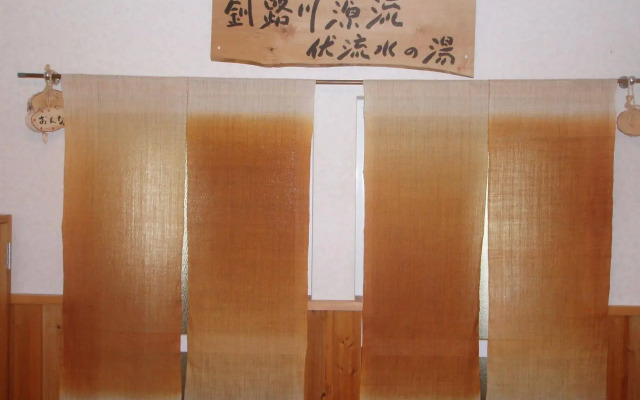 釧路川源流
伏流水の湯
おんな